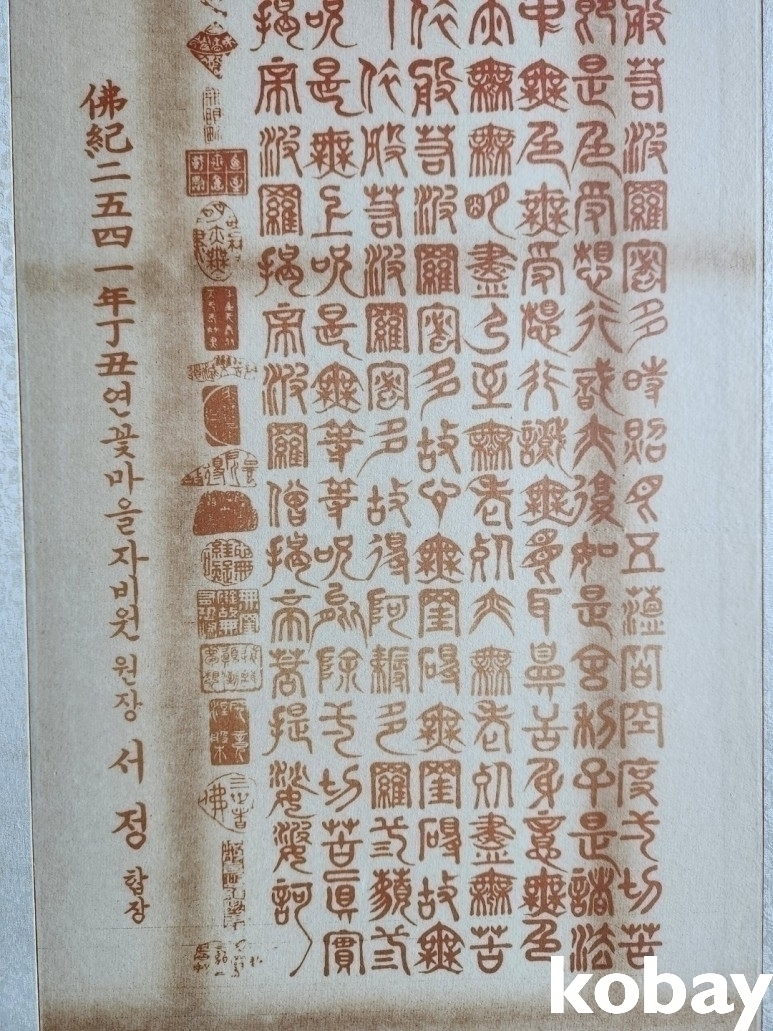 般若波羅蜜多時照見五蘊皆空度一切苦
即是色受想行識亦復如是舍利子是諸法
中無色無受想行識無眼耳鼻舌身意無色
亦無無明盡乃至無老死亦無老死盡無苦
依般若波羅蜜多故心無罣礙無罣礙故無
依般若波羅蜜多故得阿耨多羅三藐三
呪是無上呪是無等等呪能除一切苦眞實
揭帝波羅揭帝波羅僧揭帝菩提娑婆訶
佛紀二五四一年丁丑연꽃마을자비원 원장 서정 합장
kobay